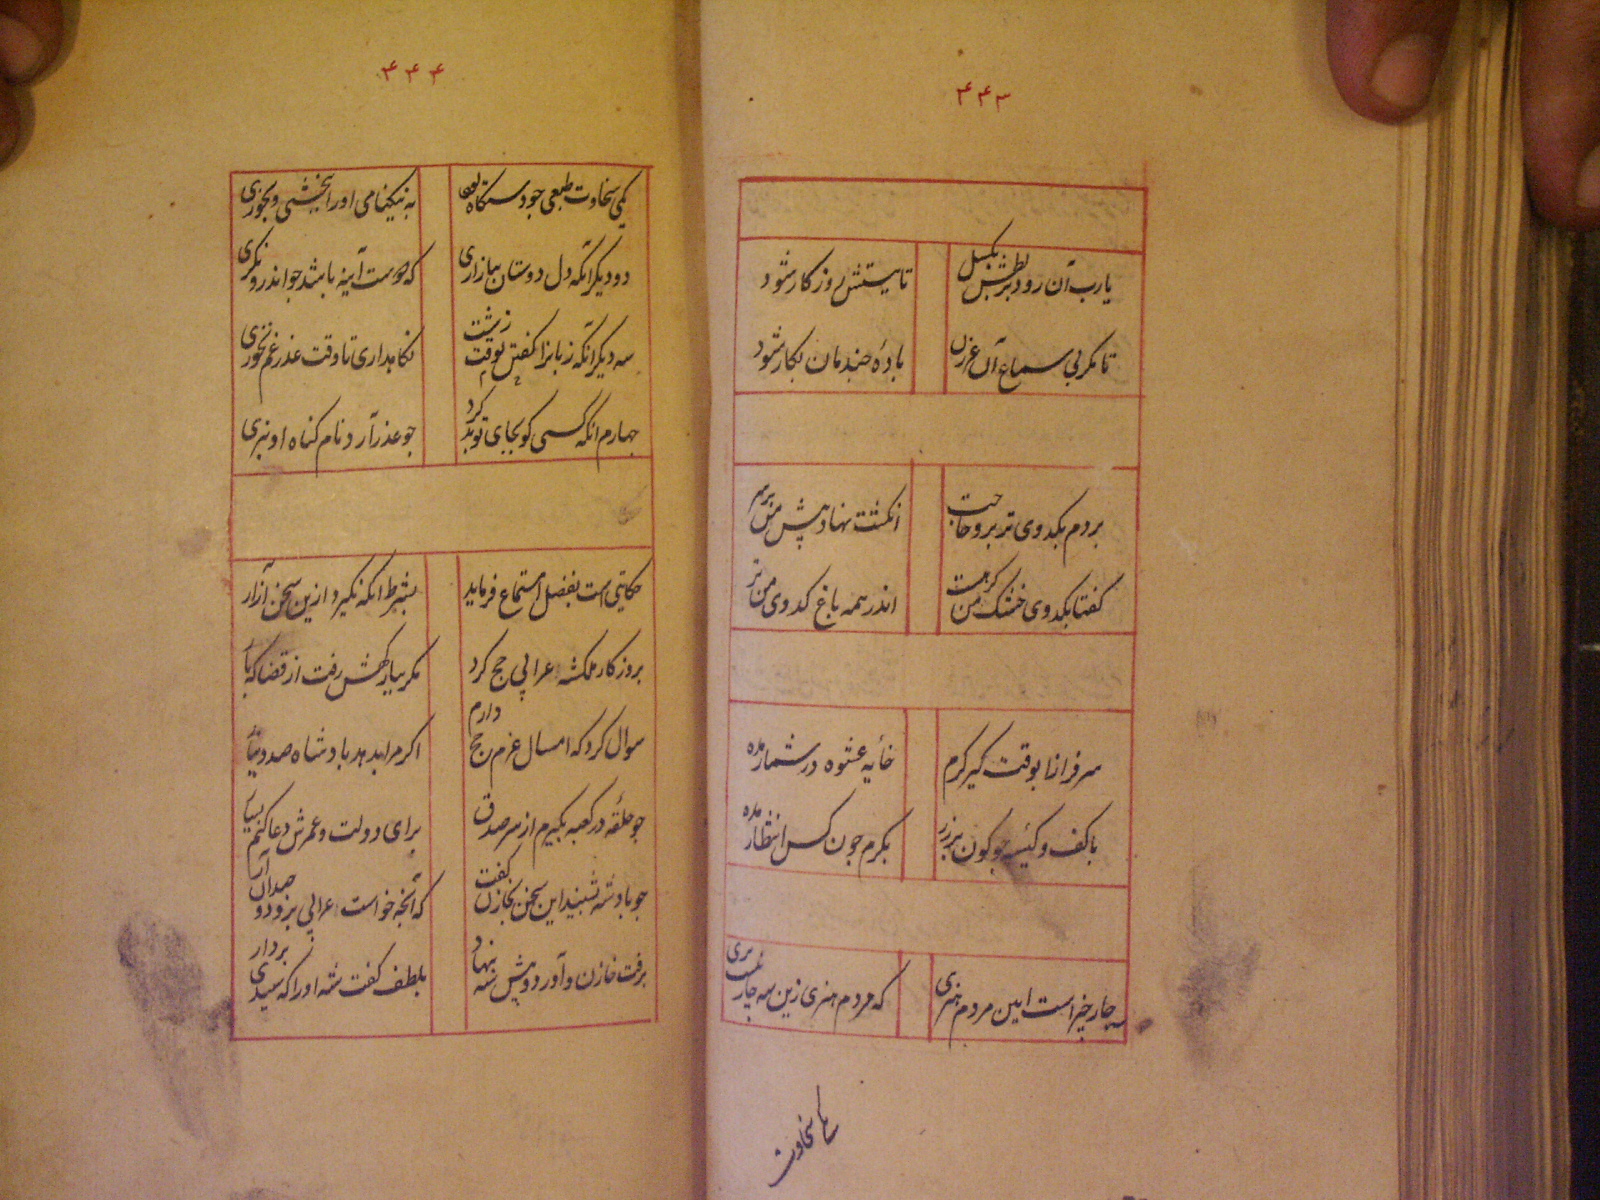 ۴۴۳
یارب آن رود بر بطش بگسل
تا بیستش روز کار شود
تا مگر بی سماع آن غزل
باده چند مان بکار شود
بردم بکدوی تر برو حاجت
انگشت نهاد پیش من بر سر
گفتا بکدوی خشک من گر هست
اندر همه باغ کدوی من تر
سرفرازا بوقت گیر کرم
خایه عشوه در شمار مده
با کف و کیسه چو کون بزرر
بکرم چون کس انتظار مده
چار چیز است ایین مردم هنری
که مردم هنری زین سه چار نیست بری
سخاوت
۴۴۴
یکی سخاوت طبعی چو دستگاه بود
به نیکنامی اورا ببخشی و بخوری
دو دیگر آنکه دل دوستان نیازاری
که دوست آینه باشد چو اندرو نگری
سه دیگر آنکه زبانرا بوقت گفتن زشت
نگاهداری تا وقت عذر غم نخوری
چهارم آنکه کسی کو بجای تو بد کرد
چو عذر آرد نام گناه او نبری
حکایتی است بفضل استماع فرماید
بشرط آنکه نگیرد ازین سخن آزار
بروزکار ملکشه عرابی حج کرد
مگر ببارگهش رفت از قضا گه بار
سوال کرد که امسال عزم حج دارم
اگر مرا بدهد پادشاه صد دینار
چو حلقه در کعبه بگیرم از سر صدق
برای دولت و عمرش دعا کنم بسیار
چو پادشه شبنید این سخن بخازن گفت
که آنچه خواست عرابی برو دو چندان آر
برفت خازن و آورد و پیش شه بنهاد
بلطف گفت شه اورا که سیدی بردار